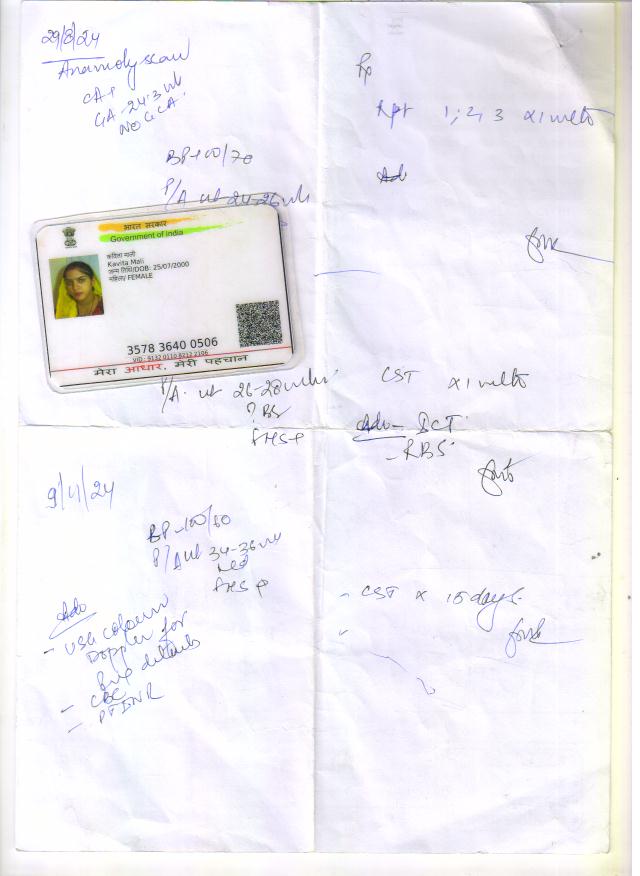 29/8/24
Anamoly scan
GA - 24.3 wk
NO GCA.
BP-100/70
P/A ut 24-26 wk
Rp
Rpt 1, 2, 3 x1 mth
भारत सरकार
Government of India
कविता माली
Kavita Mali
जन्म तिथि/DOB: 25/07/2000
महिला/ FEMALE
3578 3640 0506
VID : 9132 0110 8212 2106
मेरा आधार, मेरी पहचान
P/A. ut 26-28 wks
? BS
FHS+
CST x1 mth
Adv - GCT
- RBS
9/11/24
BP-100/60
P/A ut 34-36 wk
FHS +
- CST x 15 days
Adv
- USG colour
Doppler for
details
- CBC
- PT INR